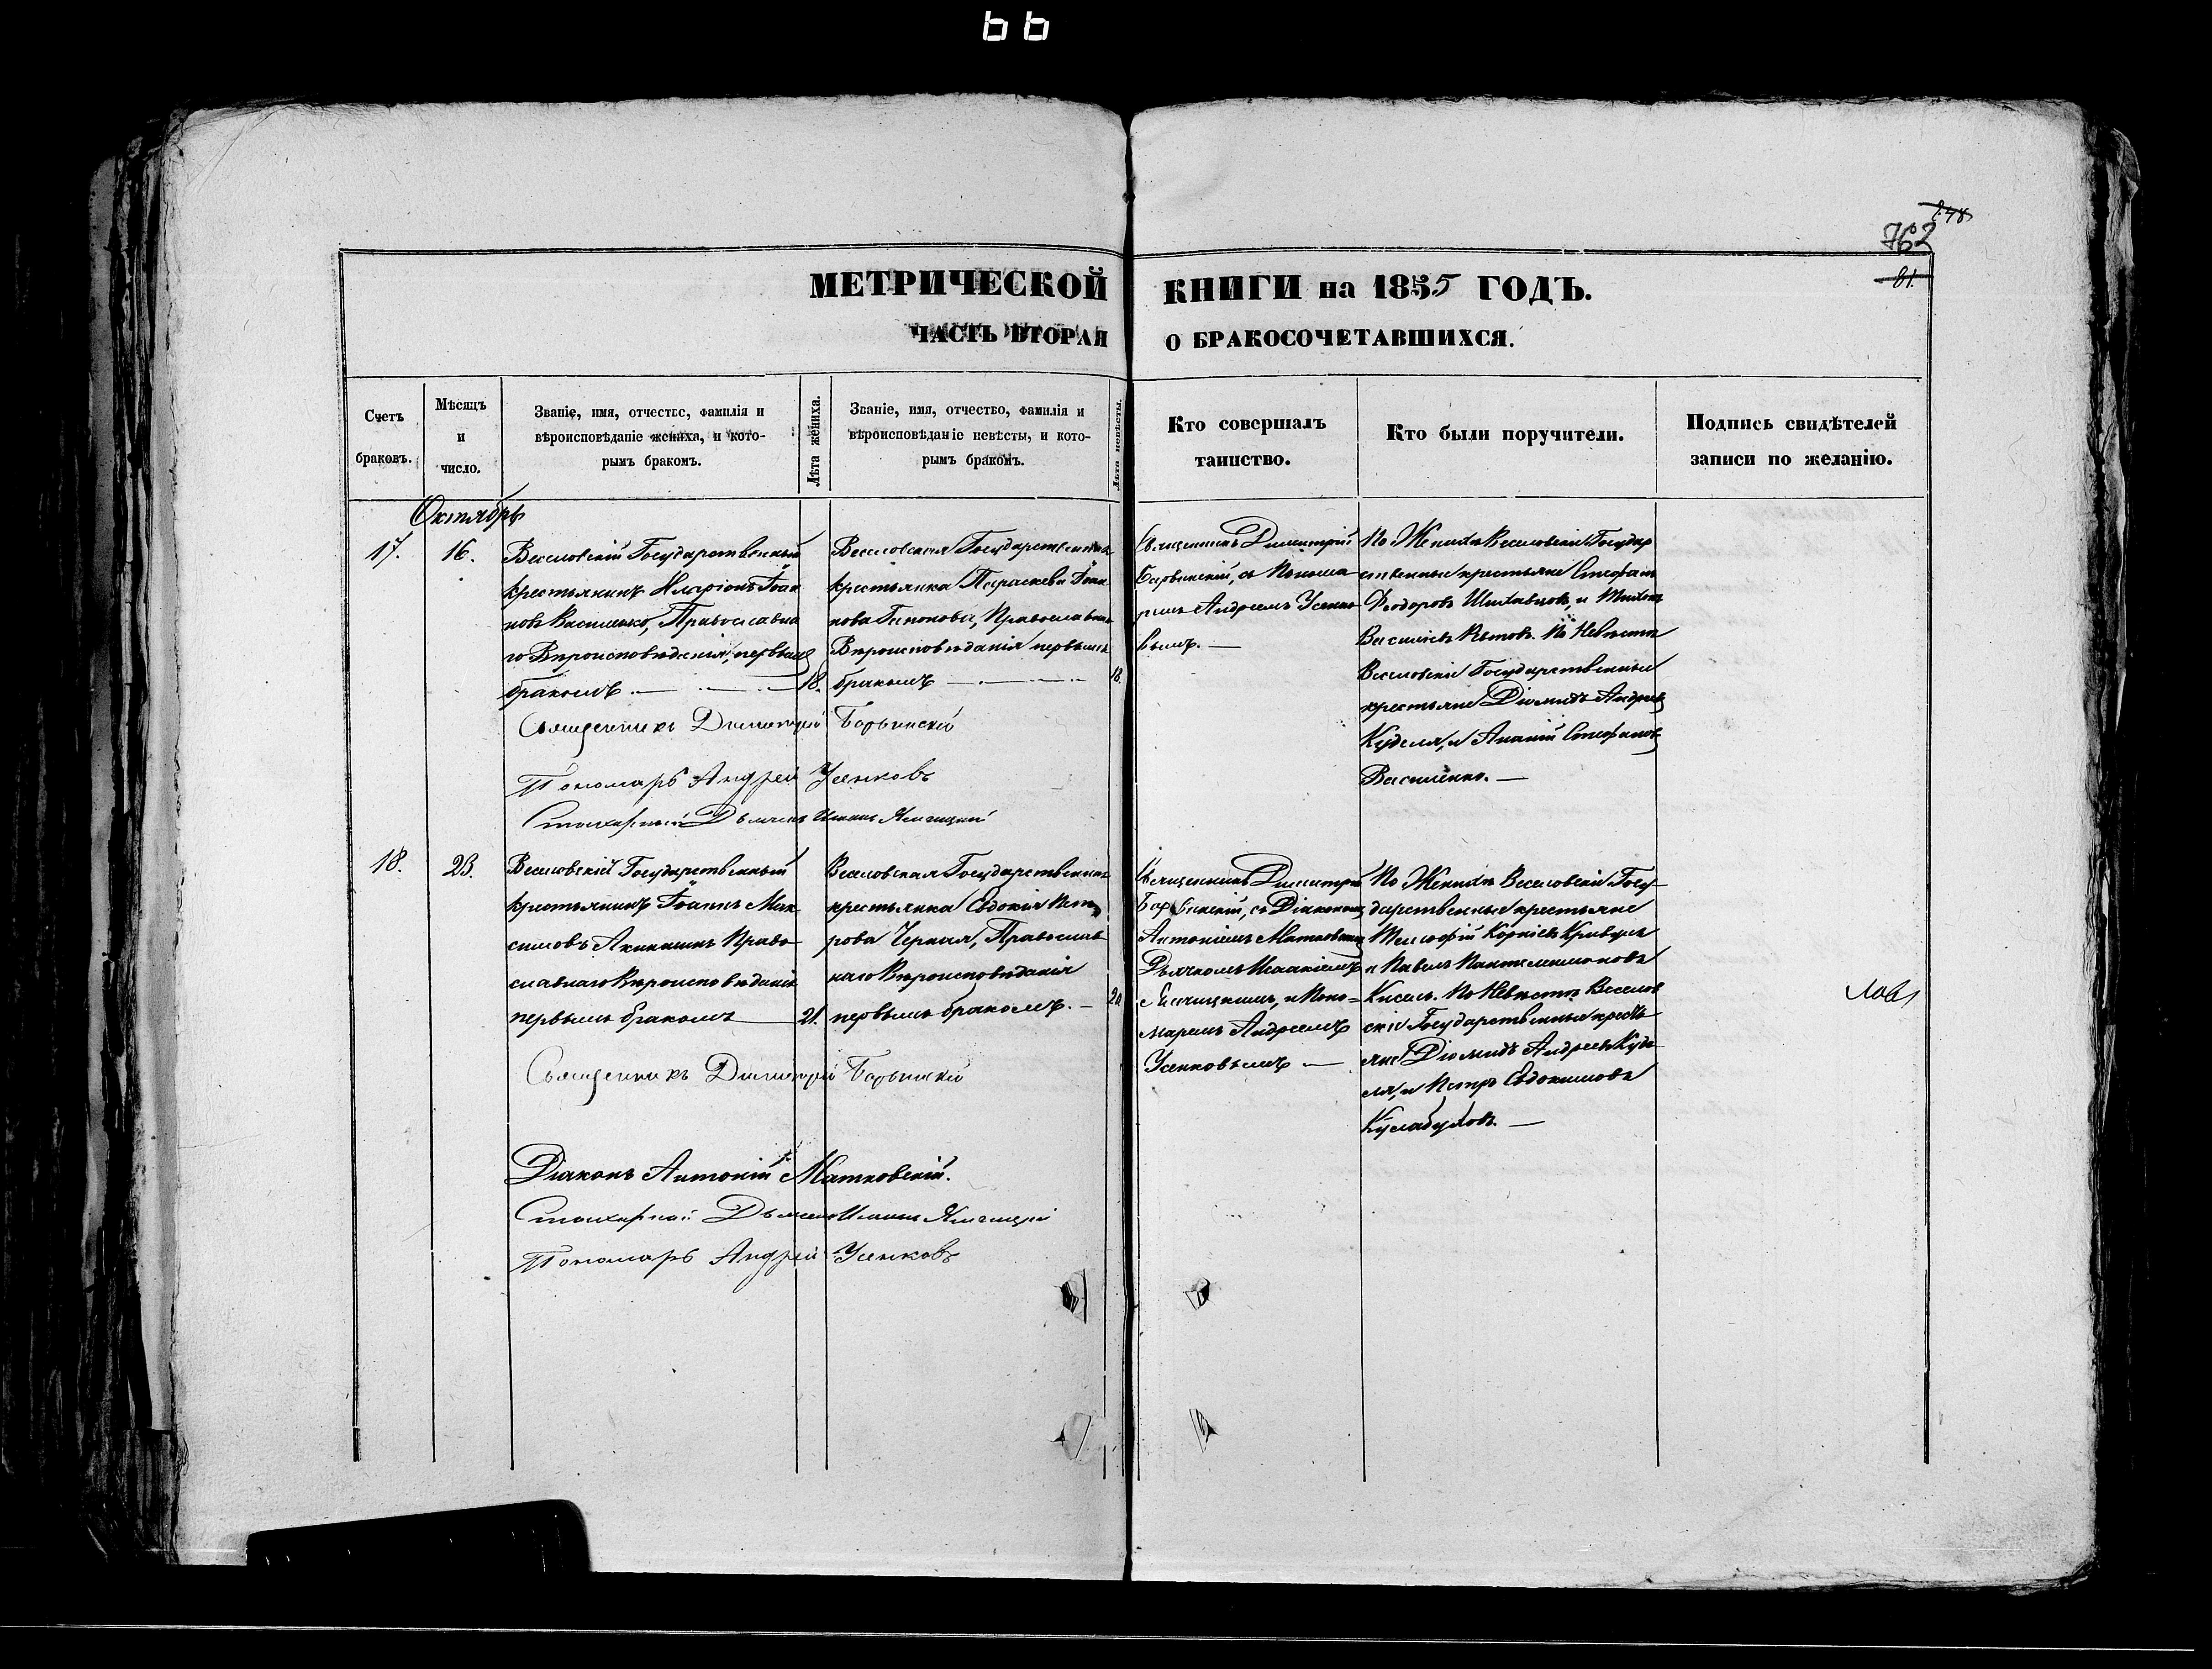 bb
248
762
81.
МЕТРИЧЕСКОЙ КНИГИ на 1855 ГОДЪ.
ЧАСТЬ ВТОРАЯ О БРАКОСОЧЕТАВШИХСЯ.
Счетъ
браковъ.
Мѣсяцъ
и
число.
Званіе, имя, отчество, фамилія и
вѣроисповѣданіе жениха, и кото-
рымъ бракомъ.
Лѣта жениха.
Званіе, имя, отчество, фамилія и
вѣроисповѣданіе невѣсты, и кото-
рымъ бракомъ.
Лѣта невѣсты.
Кто совершалъ
таинство.
Кто были поручители.
Подпись свидѣтелей
записи по желанію.
Октябрь
17.
16.
Веселовскій Государственный
крестьянинъ Иларіонъ Іоан
новъ Василенко, Православна
го Вѣроисповѣданія, первымъ
бракомъ.
18.
Веселовская Государственная
крестьянка Параскева Іоан
нова, Православнаго
Вѣроисповѣданія первымъ
бракомъ
18.
Священникъ Димитрій
Барвинскій, съ Понома
ремъ Андреемъ Усенко
вымъ.
По Женихѣ Веселовскіе Государ
ственные крестьяне Стефанъ
Феодоровъ и Тихонъ
Василіевъ По Невѣстѣ
Веселовскіе Государственные
крестьяне Діомидъ Андреевъ
Куделя, и Ананій Стефановъ
Василенко.
Священникъ Димитрій Барвинскій
Пономарь Андрей Усенковъ
Стихарный Дьячекъ
18.
23.
Веселовскій Государственный
крестьянинъ Іоаннъ Мак
симовъ Право
славнаго Вѣроисповѣданія
первымъ бракомъ
21.
Веселовская Государственная
крестьянка Евдокія Пет
рова Черная, Православ
наго Вѣроисповѣданія
первымъ бракомъ.
20
Священникъ Димитрій
Барвинскій, съ Діакономъ
Антоніемъ Матковскимъ
Дьячкомъ и Поно=
маремъ Андреемъ
Усенковымъ
По Женихѣ Веселовскіе Госу-
дарственные крестьяне
Корніевъ Кривуля
и Павелъ Пантелеимоновъ
Кисель. По Невѣстѣ Веселов
скіе Государственные кресть
яне Діомидъ Андреевъ Куде
ля, и Петръ Евдокимовъ
Кулабуховъ.
Священникъ Димитрій Барвинскій
Діаконъ Антоній Матковскій.
Стихарный Дьячекъ
Пономарь Андрей Усенковъ